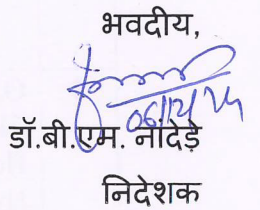 भवदीय,
06/12/24
डॉ.बी.एम. नांदेड़े
निदेशक